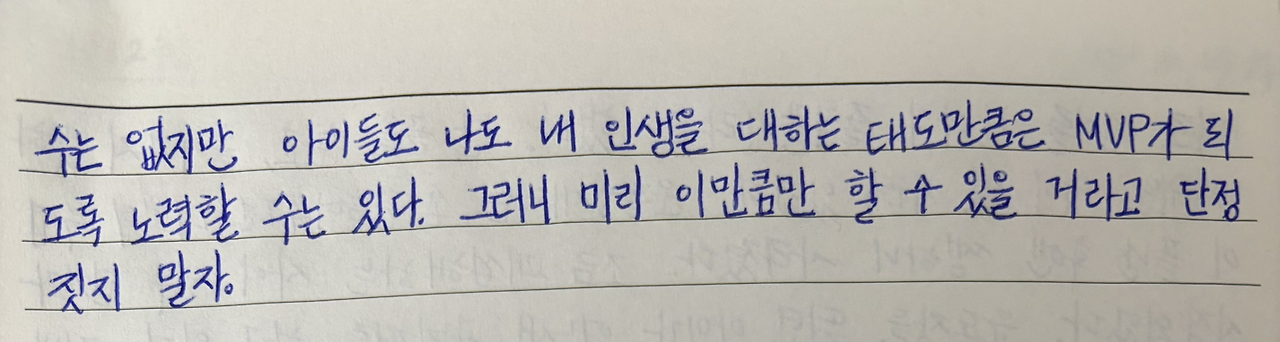 수는 없지만 아이들도 나도 내 인생을 대하는 태도만큼은 MVP가 되
도록 노력할 수는 있다. 그러니 미리 이만큼만 할 수 있을 거라고 단정
짓지 말자.